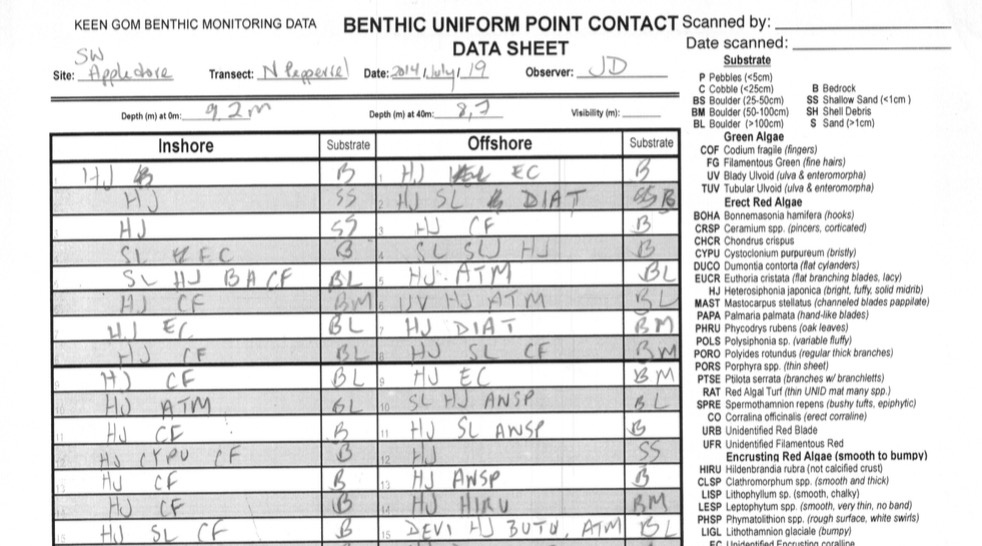 KEEN GOM BENTHIC MONITORING DATA BENTHIC UNIFORM POINT CONTACT Scanned by:
DATA SHEET Date scanned:
SW
Site: Appledore Transect: N Pepperrel Date: 2014, July, 19 Observer: JD
Depth (m) at 0m: 9,2m Depth (m) at 40m: 8,7 Visibility (m):
Inshore Substrate Offshore Substrate
1 HJ B 1 HJ EC B
HJ SS 2 HJ SL DIAT SS B
HJ SS 3 HJ CF B
SL EC B 4 SL SW HJ B
SL HJ BA CF BL 5 HJ ATM BL
HJ CF BM 6 UV HJ ATM BL
HJ EC BL 7 HJ DIAT BM
HJ CF BL 8 HJ SL CF BM
9 HJ CF BL 9 HJ EC BM
10 HJ ATM BL 10 SL HJ ANSP BL
11 HJ CF B 11 HJ SL ANSP B
12 HJ CYPU CF B 12 HJ SS
13 HJ CF B 13 HJ ANSP B
14 HJ CF B 14 HJ HIRU BM
15 HJ SL CF B 15 DEVI HJ BUTU, ATM BL
Substrate
P Pebbles (<5cm)
C Cobble (<25cm) B Bedrock
BS Boulder (25-50cm) SS Shallow Sand (<1cm)
BM Boulder (50-100cm) SH Shell Debris
BL Boulder (>100cm) S Sand (>1cm)
Green Algae
COF Codium fragile (fingers)
FG Filamentous Green (fine hairs)
UV Blady Ulvoid (ulva & enteromorpha)
TUV Tubular Ulvoid (ulva & enteromorpha)
Erect Red Algae
BOHA Bonnemasonia hamifera (hooks)
CRSP Ceramium spp. (pincers, corticated)
CHCR Chondrus crispus
CYPU Cystoclonium purpureum (bristly)
DUCO Dumontia contorta (flat cylanders)
EUCR Euthoria cristata (flat branching blades, lacy)
HJ Heterosiphonia japonica (bright, fuffy, solid midrib)
MAST Mastocarpus stellatus (channeled blades pappilate)
PAPA Palmaria palmata (hand-like blades)
PHRU Phycodrys rubens (oak leaves)
POLS Polysiphonia sp. (variable fluffy)
PORO Polyides rotundus (regular thick branches)
PORS Porphyra spp. (thin sheet)
PTSE Ptilota serrata (branches w/ branchletts)
RAT Red Algal Turf (thin UNID mat many spp.)
SPRE Spermothamnion repens (bushy tufts, epiphytic)
CO Corallina officinalis (erect corraline)
URB Unidentified Red Blade
UFR Unidentified Filamentous Red
Encrusting Red Algae (smooth to bumpy)
HIRU Hildenbrandia rubra (not calcified crust)
CLSP Clathromorphum spp. (smooth and thick)
LISP Lithophyllum sp. (smooth, chalky)
LESP Leptophytum spp. (smooth, very thin, no band)
PHSP Phymatolithion spp. (rough surface, white swirls)
LIGL Lithothamnion glaciale (bumpy)
EC Unidentified Encrusting coralline